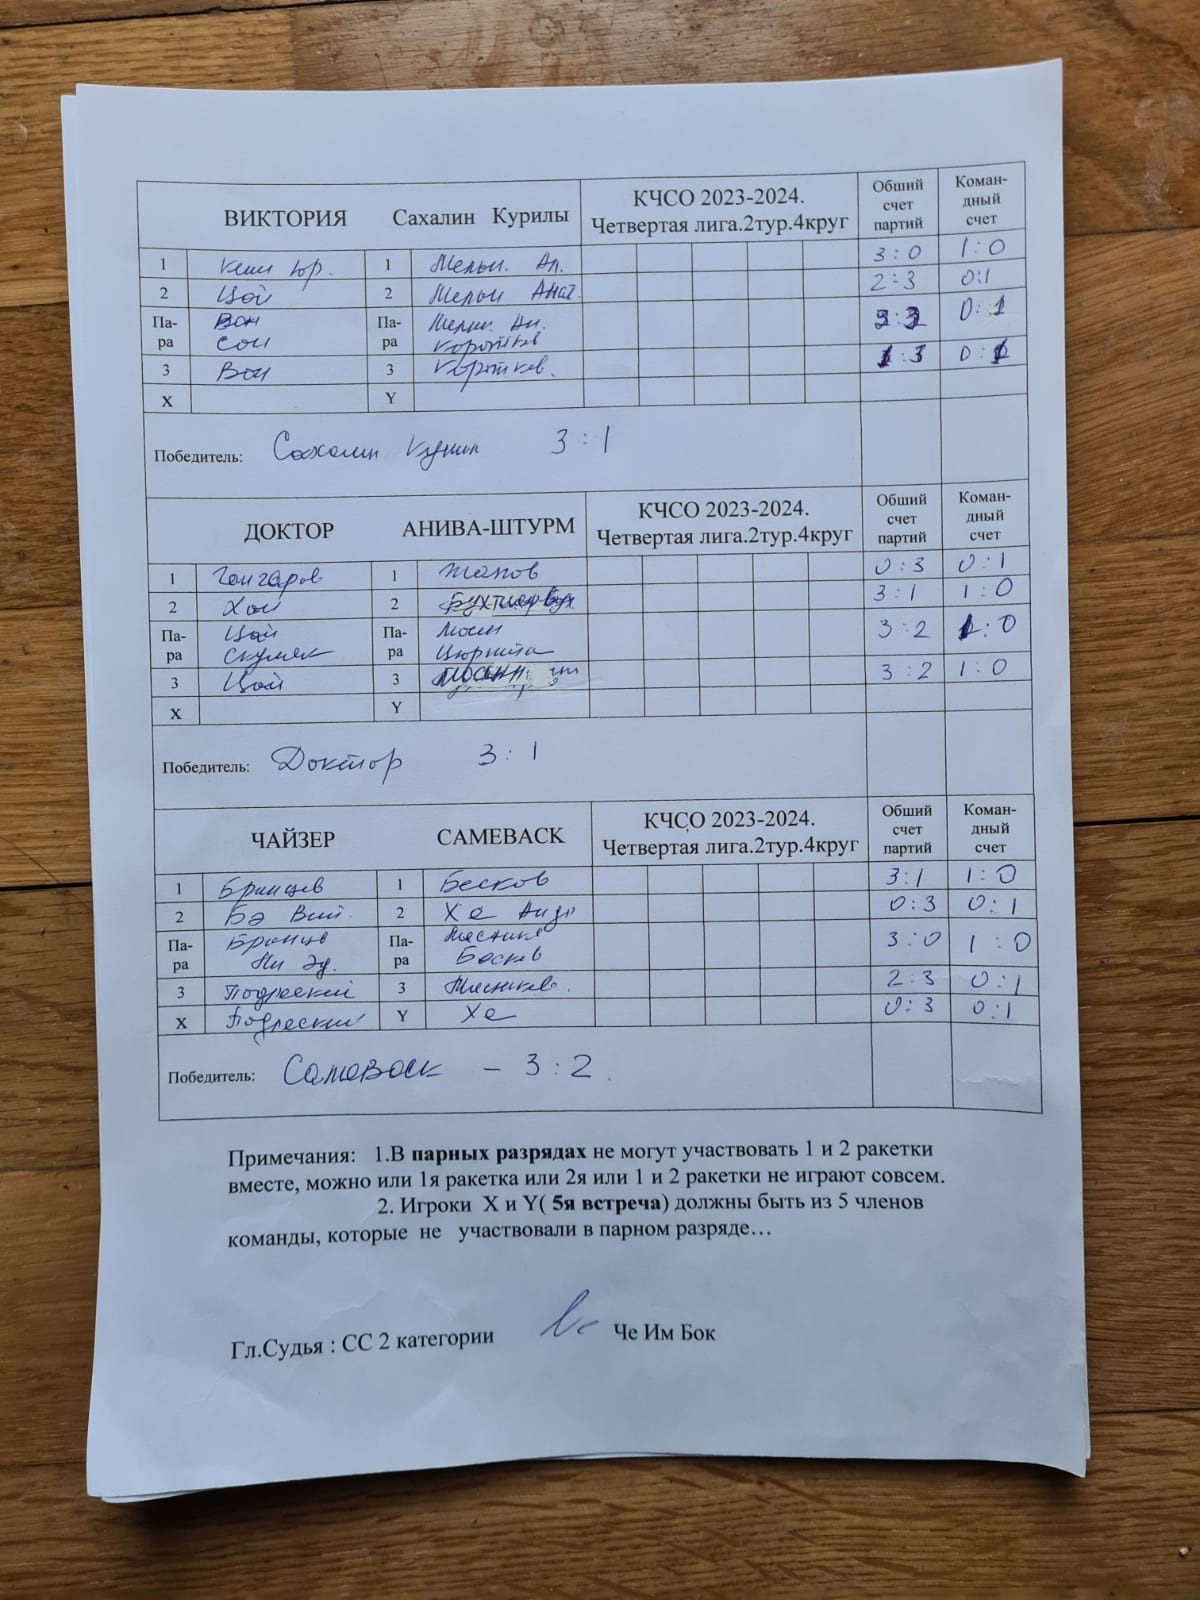 ВИКТОРИЯ Сахалин Курилы КЧСО 2023-2024. Четвертая лига.2тур.4круг Обший счет партий Коман-дный счет
1 Юр. 1 Ал. 3:0 1:0
2 Цой 2 Анат. 2:3 0:1
Па-ра Вон Па-ра :3 0:1
Сон Коротков
3 Вон 3 Коротков. 1:3 0:1
X Y
Победитель: Сахалин 3:1
ДОКТОР АНИВА-ШТУРМ КЧСО 2023-2024. Четвертая лига.2тур.4круг Обший счет партий Коман-дный счет
1 Гончаров 1 0:3 0:1
2 Хон 2 3:1 1:0
Па-ра Цой Па-ра 3:2 1:0
3 Цой 3 3:2 1:0
X Y
Победитель: Доктор 3:1
ЧАЙЗЕР САМЕВАСК КЧСО 2023-2024. Четвертая лига.2тур.4круг Обший счет партий Коман-дный счет
1 Бринцев 1 Бесков 3:1 1:0
2 Бэ 2 Хе 0:3 0:1
Па-ра Па-ра 3:0 1:0
Ни Эд. Бесков
3 3 2:3 0:1
X Y Хе 0:3 0:1
Победитель: СамеВаск – 3:2.
Примечания: 1.В парных разрядах не могут участвовать 1 и 2 ракетки
вместе, можно или 1я ракетка или 2я или 1 и 2 ракетки не играют совсем.
2. Игроки X и Y( 5я встреча) должны быть из 5 членов
команды, которые не участвовали в парном разряде…
Гл.Судья : СС 2 категории Че Им Бок